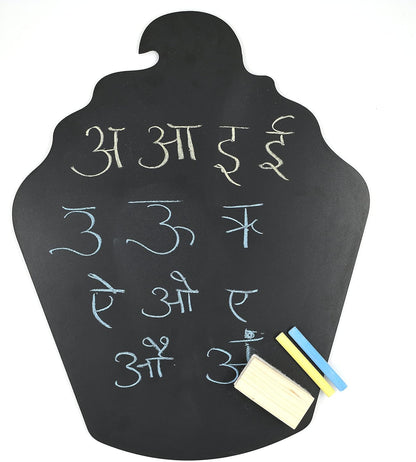 अ आ इ ई
उ ऊ ऋ
ऐ ओ ए
औ